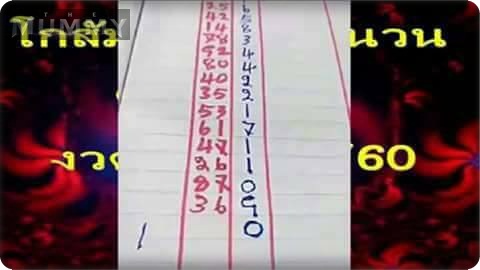 MUMMY
โกสัม นวน
25 6
42 5
14 8
78 3
92 4
80 4
40 2
35 2
53 1
61 7
47 1
26 1
87 0
36 9
1 0
งวด /60